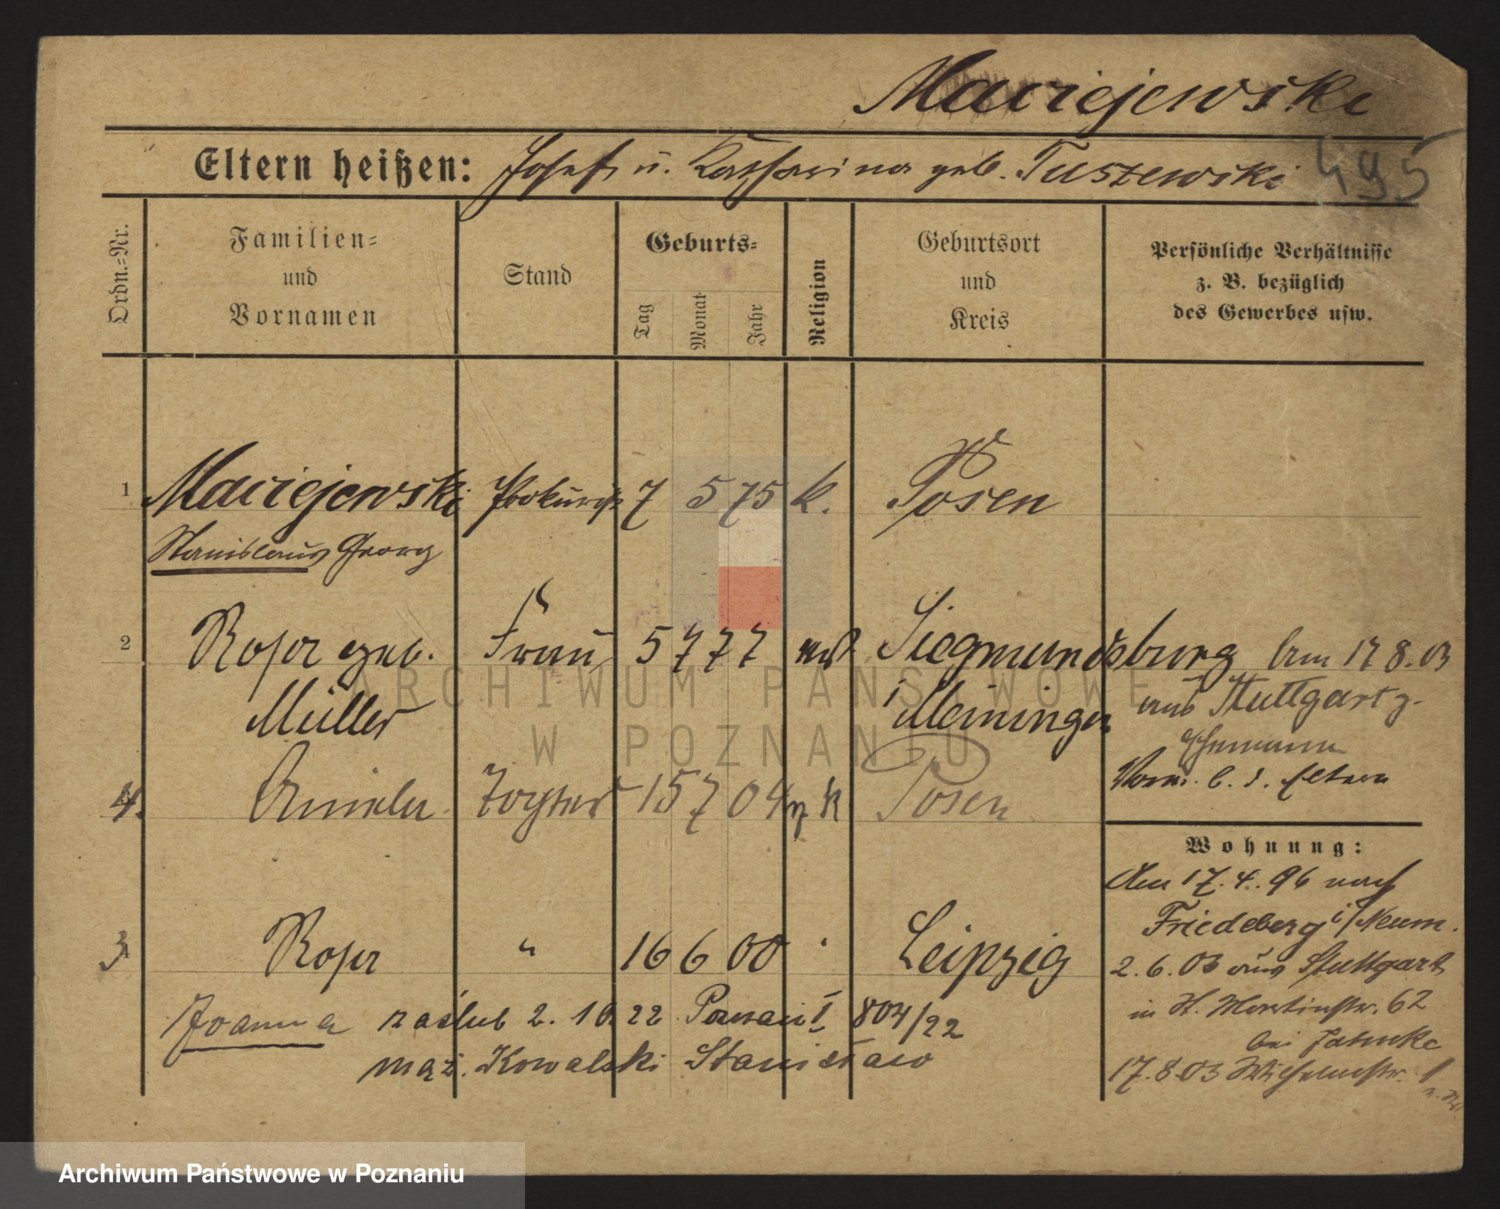 Maciejewski
Eltern heißen: Josef u. Katharina geb. Tuszewski 495
Ordn.-Nr.
Familien-
und
Vornamen
Stand
Geburts-
Tag
Monat
Jahr
Religion
Geburtsort
und
Kreis
Persönliche Verhältnisse
z. B. bezüglich
des Gewerbes usw.
1 Maciejewski Prokurist 7 5 75 k. Posen
Stanislaus Georg
2 Rosa geb. Frau 5 7 77 Siegmundsburg Am 17 8. 03
Müller i Meiningen aus Stuttgart z.
Ehemann
4. Tochter 15 7 04 k Posen
b. d. Eltern
Wohnung:
Am 17. 4. 96 nach
Friedeberg i/Neum.
3 Rosa " 16 6 00 Leipzig
2. 6. 03 aus Stuttgart
Joanna zaślub 2. 10 22 Poznań I 804/22
in St. Martinstr. 62
bei
mąż. Kowalski Stanisław
17. 8 03 Wilhelmstr.
ARCHIWUM PAŃSTWOWE
W POZNANIU
Archiwum Państwowe w Poznaniu